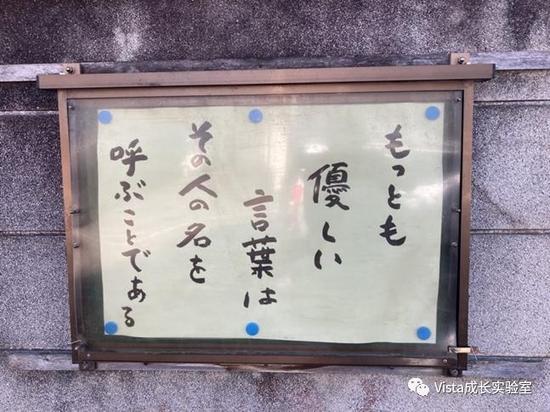 もっとも
優しい
言葉は
その人の名を
呼ぶことである
Vista成长实验室